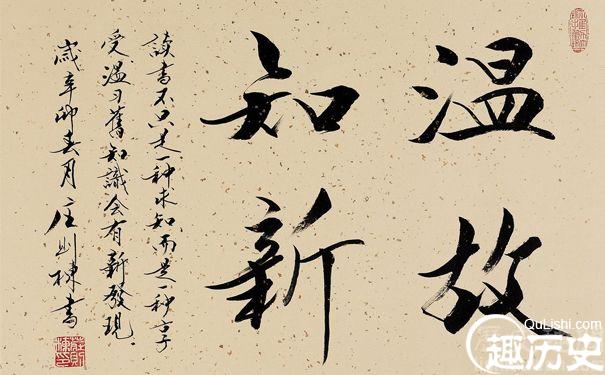 温故
知新
讀書不只是一种求知而是一种享
受温习舊知識会有新發現.
歲辛卯春月庄则棟書
QuLishi.com
趣历史